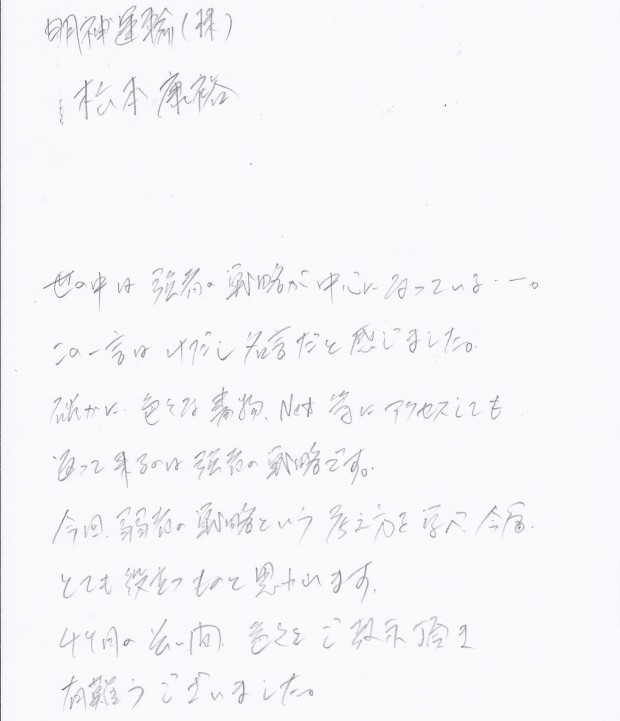 明神運輸(株)
松本康裕
世の中は強者の戦略が中心になっている…。
この一言はけだし名言だと感じました。
確かに、色々な書物、Net等にアクセスしても
返って来るのは強者の戦略です。
今回、弱者の戦略という考え方を学べ、今后、
とても役立つものと思われます。
4ヶ月の長い間、色々とご教示頂き
有難うございました。